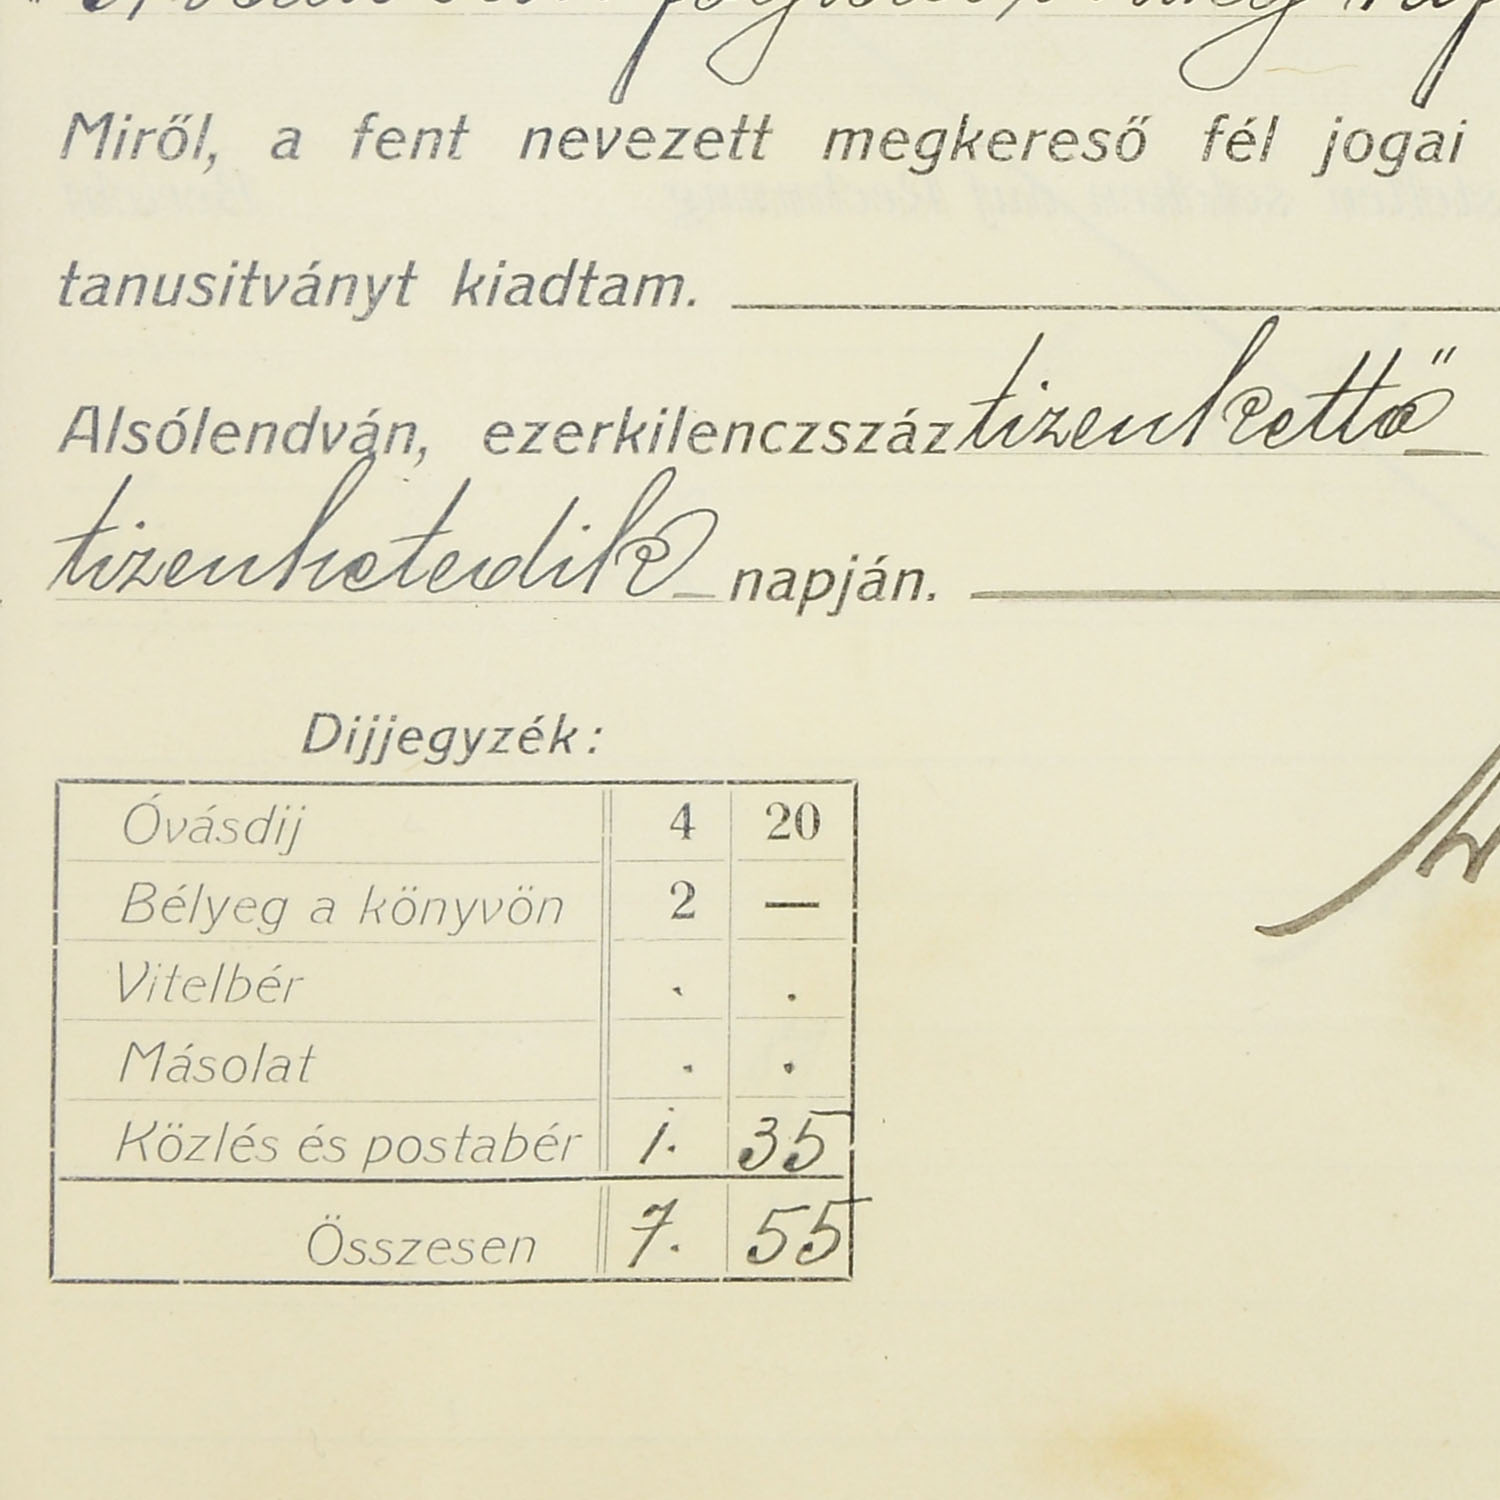 Miről, a fent nevezett megkereső fél jogai
tanusitványt kiadtam.
Alsólendván, ezerkilenczszáz tizenkettő
tizenhetedik napján.
Dijjegyzék:
Óvásdij 4 20
Bélyeg a könyvön 2 —
Vitelbér . .
Másolat . .
Közlés és postabér 1. 35
Összesen 7. 55